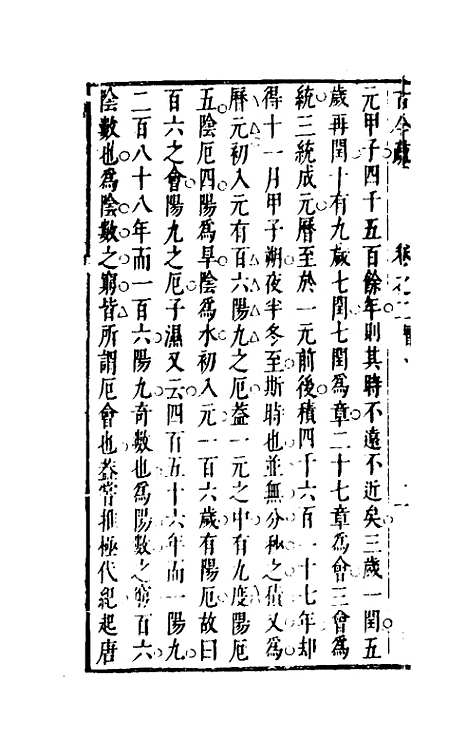 古今疏 卷之二
元甲子四千五百餘年則其時不遠不近矣三歲一閏五
歲再閏十有九歲七閏七閏爲章二十七章爲會三會爲
統三統成元曆至於一元前後積四千六百一十七年却
得十一月甲子朔夜半冬至斯時也並無分秒之積又爲
曆元初入元有百六陽九之厄蓋一元之中有九度陽厄
五陰厄四陽爲旱陰爲水初入元一百六歲有陽厄故曰
百六之會陽九之厄子濕又云四百五十六年而一陽九
二百八十八年而一百六陽九奇數也爲陽數之窮百六
陰數也爲陰數之窮皆所謂厄會也葢嘗推極代紀起唐